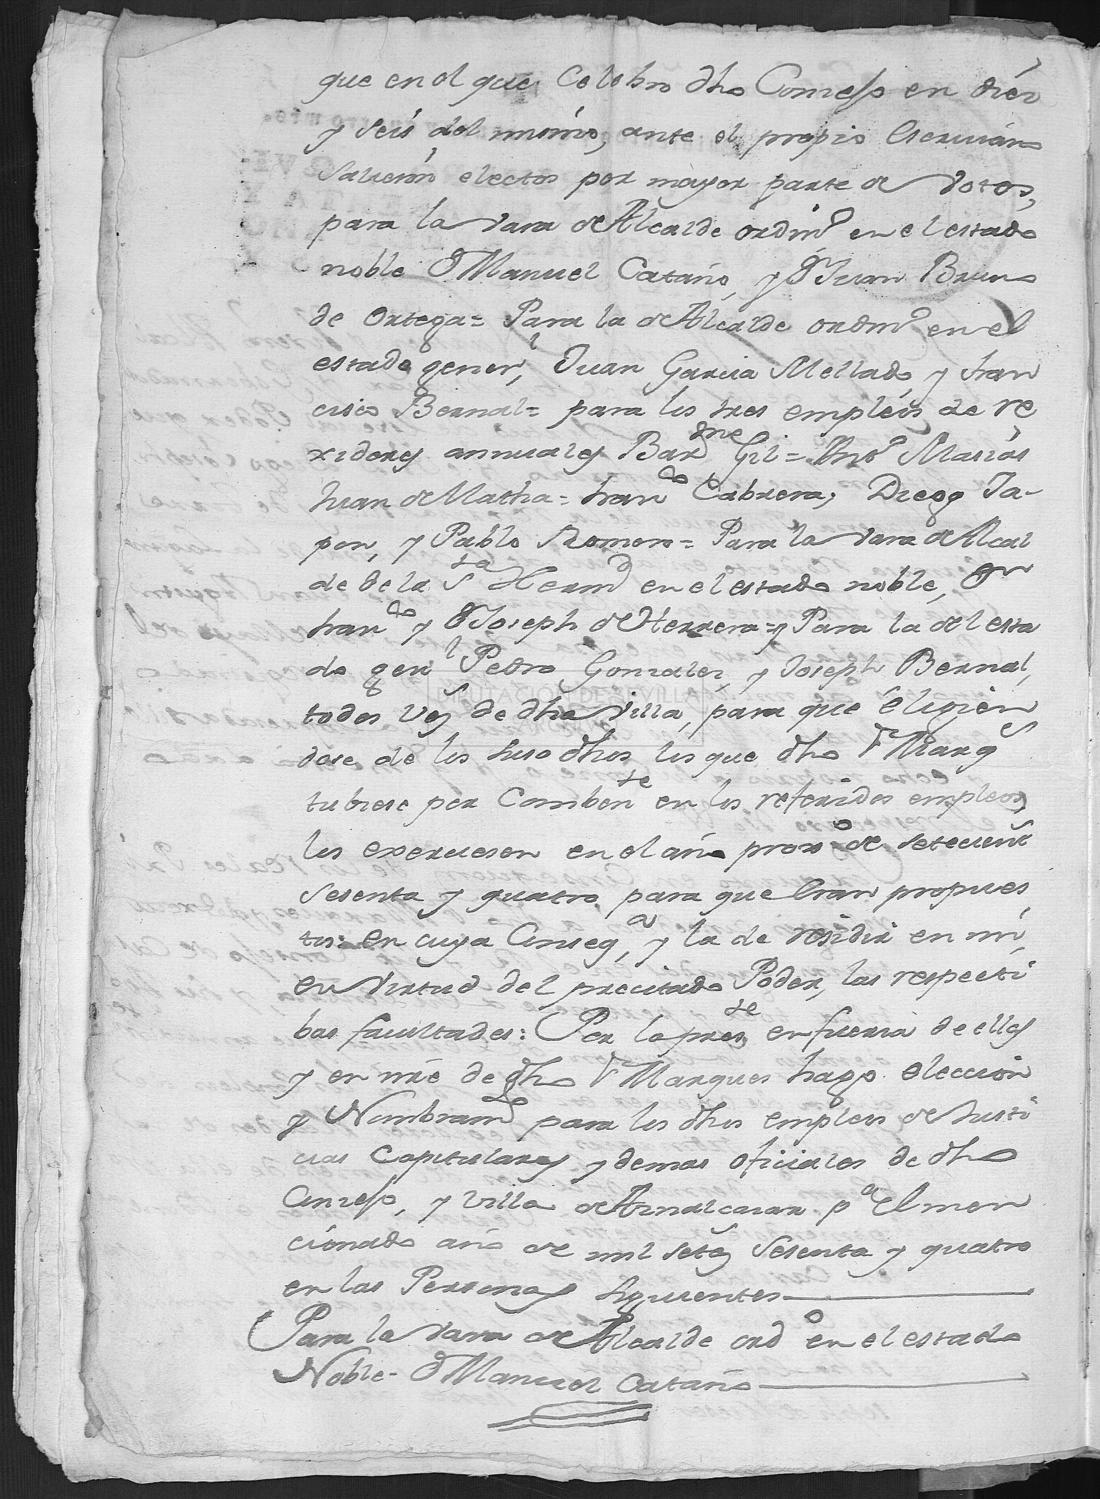 que en el que Celebro dho Consejo en diez
y seis del mismo, ante el propio Escrivano
Salieron electos por mayor parte de Votos,
para la vara de Alcalde ordin.º en el estado
noble Dⁿ Manuel Cataño, y Dⁿ Juan Bruno
de Ortega = Para la de Alcalde ordin.º en el
estado gener.l Juan Garcia Mellado, y Fran
cisco Bernal = para los tres empleos de re
xidores annuales Bar.me Gil = Ant.º Masias
Juan de Matha = Fran.co Cabrera; Diego Ja-
pon, y Pablo Romero = Para la vara de Alcal
de de la S.ta Herm.d en el estado noble, Dⁿ
Fran.co y Dⁿ Joseph de Herrera = y Para la del esta
do gen.l Pedro Gonzales, y Joseph Bernal,
DIPUTACIÓN DE SEVILLA
todos Vos de dha Villa, para que eligien
dose de los suso dhos los que dho S.r Marq.s
tubiese por Comben.te en los referidos empleos,
los exerciesen en el año prox.º de setecient.s
Sesenta y quatro, para que Eran propues
tos: en cuya Conseq.a, y la de residir en mi,
en virtud del precitado Poder, las respecti
bas facultades: Por la pres.te en fuerza de ellas
y en nre de dho S.r Marques hago eleccion
y Nombram.to para los dhos empleos de Justi
cias Capitulares y demas oficiales de dho
Consejo, y Villa de Aznalcazar p.a el men
cionado año de mil sete.s Sesenta y quatro
en las Personas siguientes
Para la vara de Alcalde ord.º en el estado
Noble - Dⁿ Manuel Cataño